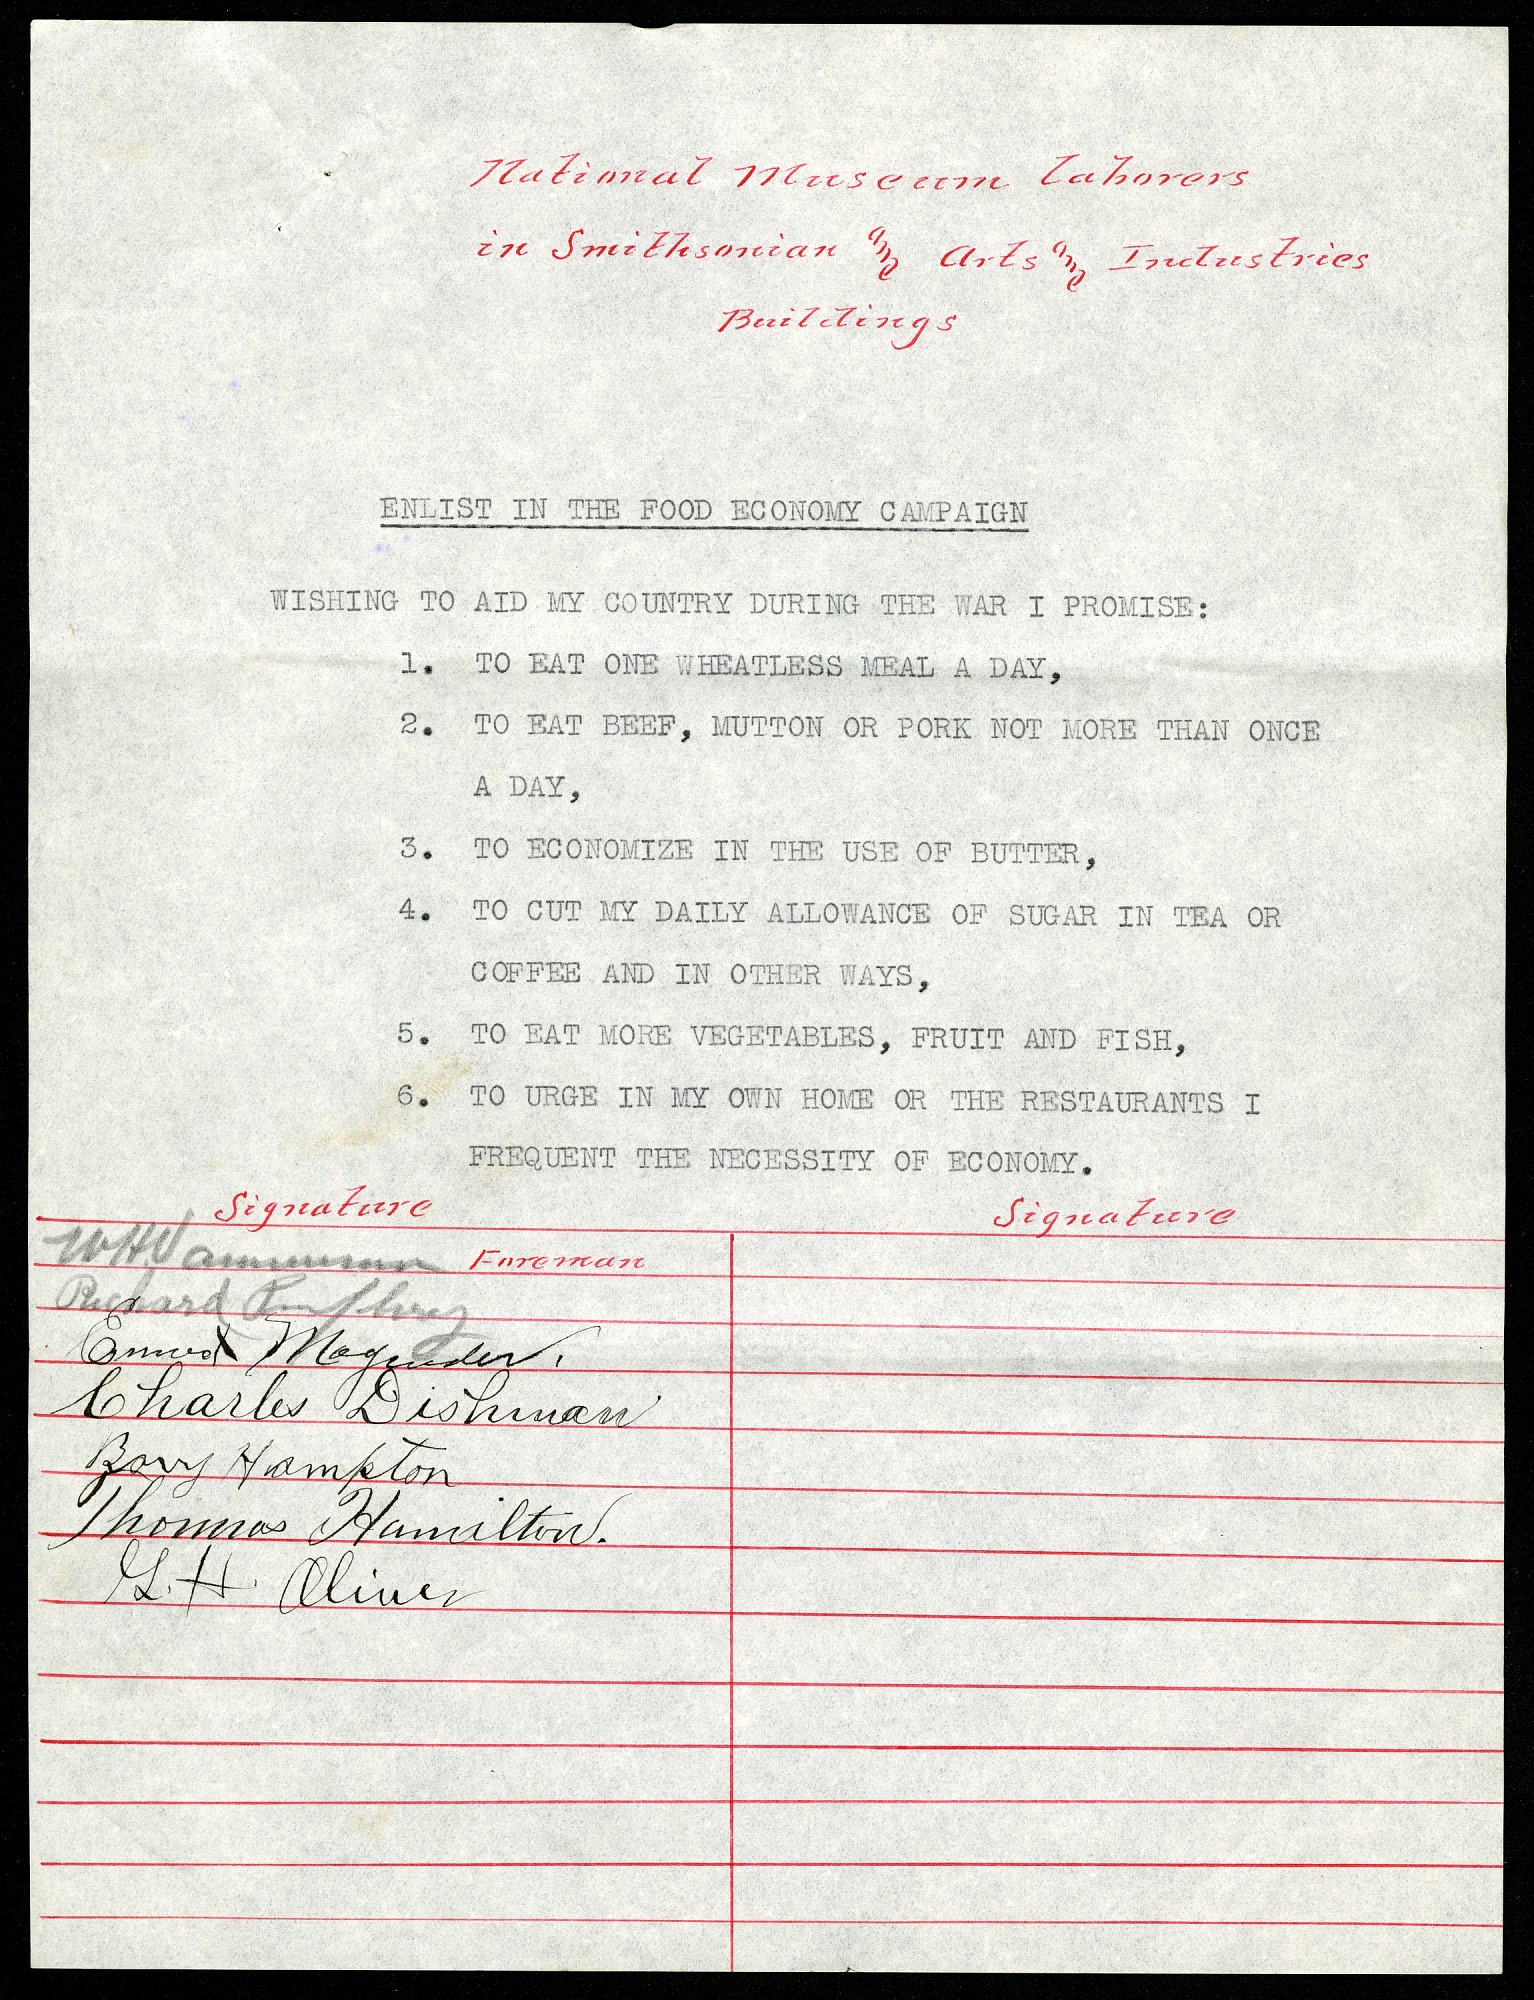 National Museum laborers
in Smithsonian and Arts and Industries
Buildings
ENLIST IN THE FOOD ECONOMY CAMPAIGN
WISHING TO AID MY COUNTRY DURING THE WAR I PROMISE:
1. TO EAT ONE WHEATLESS MEAL A DAY,
2. TO EAT BEEF, MUTTON OR PORK NOT MORE THAN ONCE
A DAY,
3. TO ECONOMIZE IN THE USE OF BUTTER,
4. TO CUT MY DAILY ALLOWANCE OF SUGAR IN TEA OR
COFFEE AND IN OTHER WAYS,
5. TO EAT MORE VEGETABLES, FRUIT AND FISH,
6. TO URGE IN MY OWN HOME OR THE RESTAURANTS I
FREQUENT THE NECESSITY OF ECONOMY.
Signature Signature
W H Foreman
Richard
Magruder.
Charles Dishman
Hampton
Thomas Hamilton.
G. H. Oliver